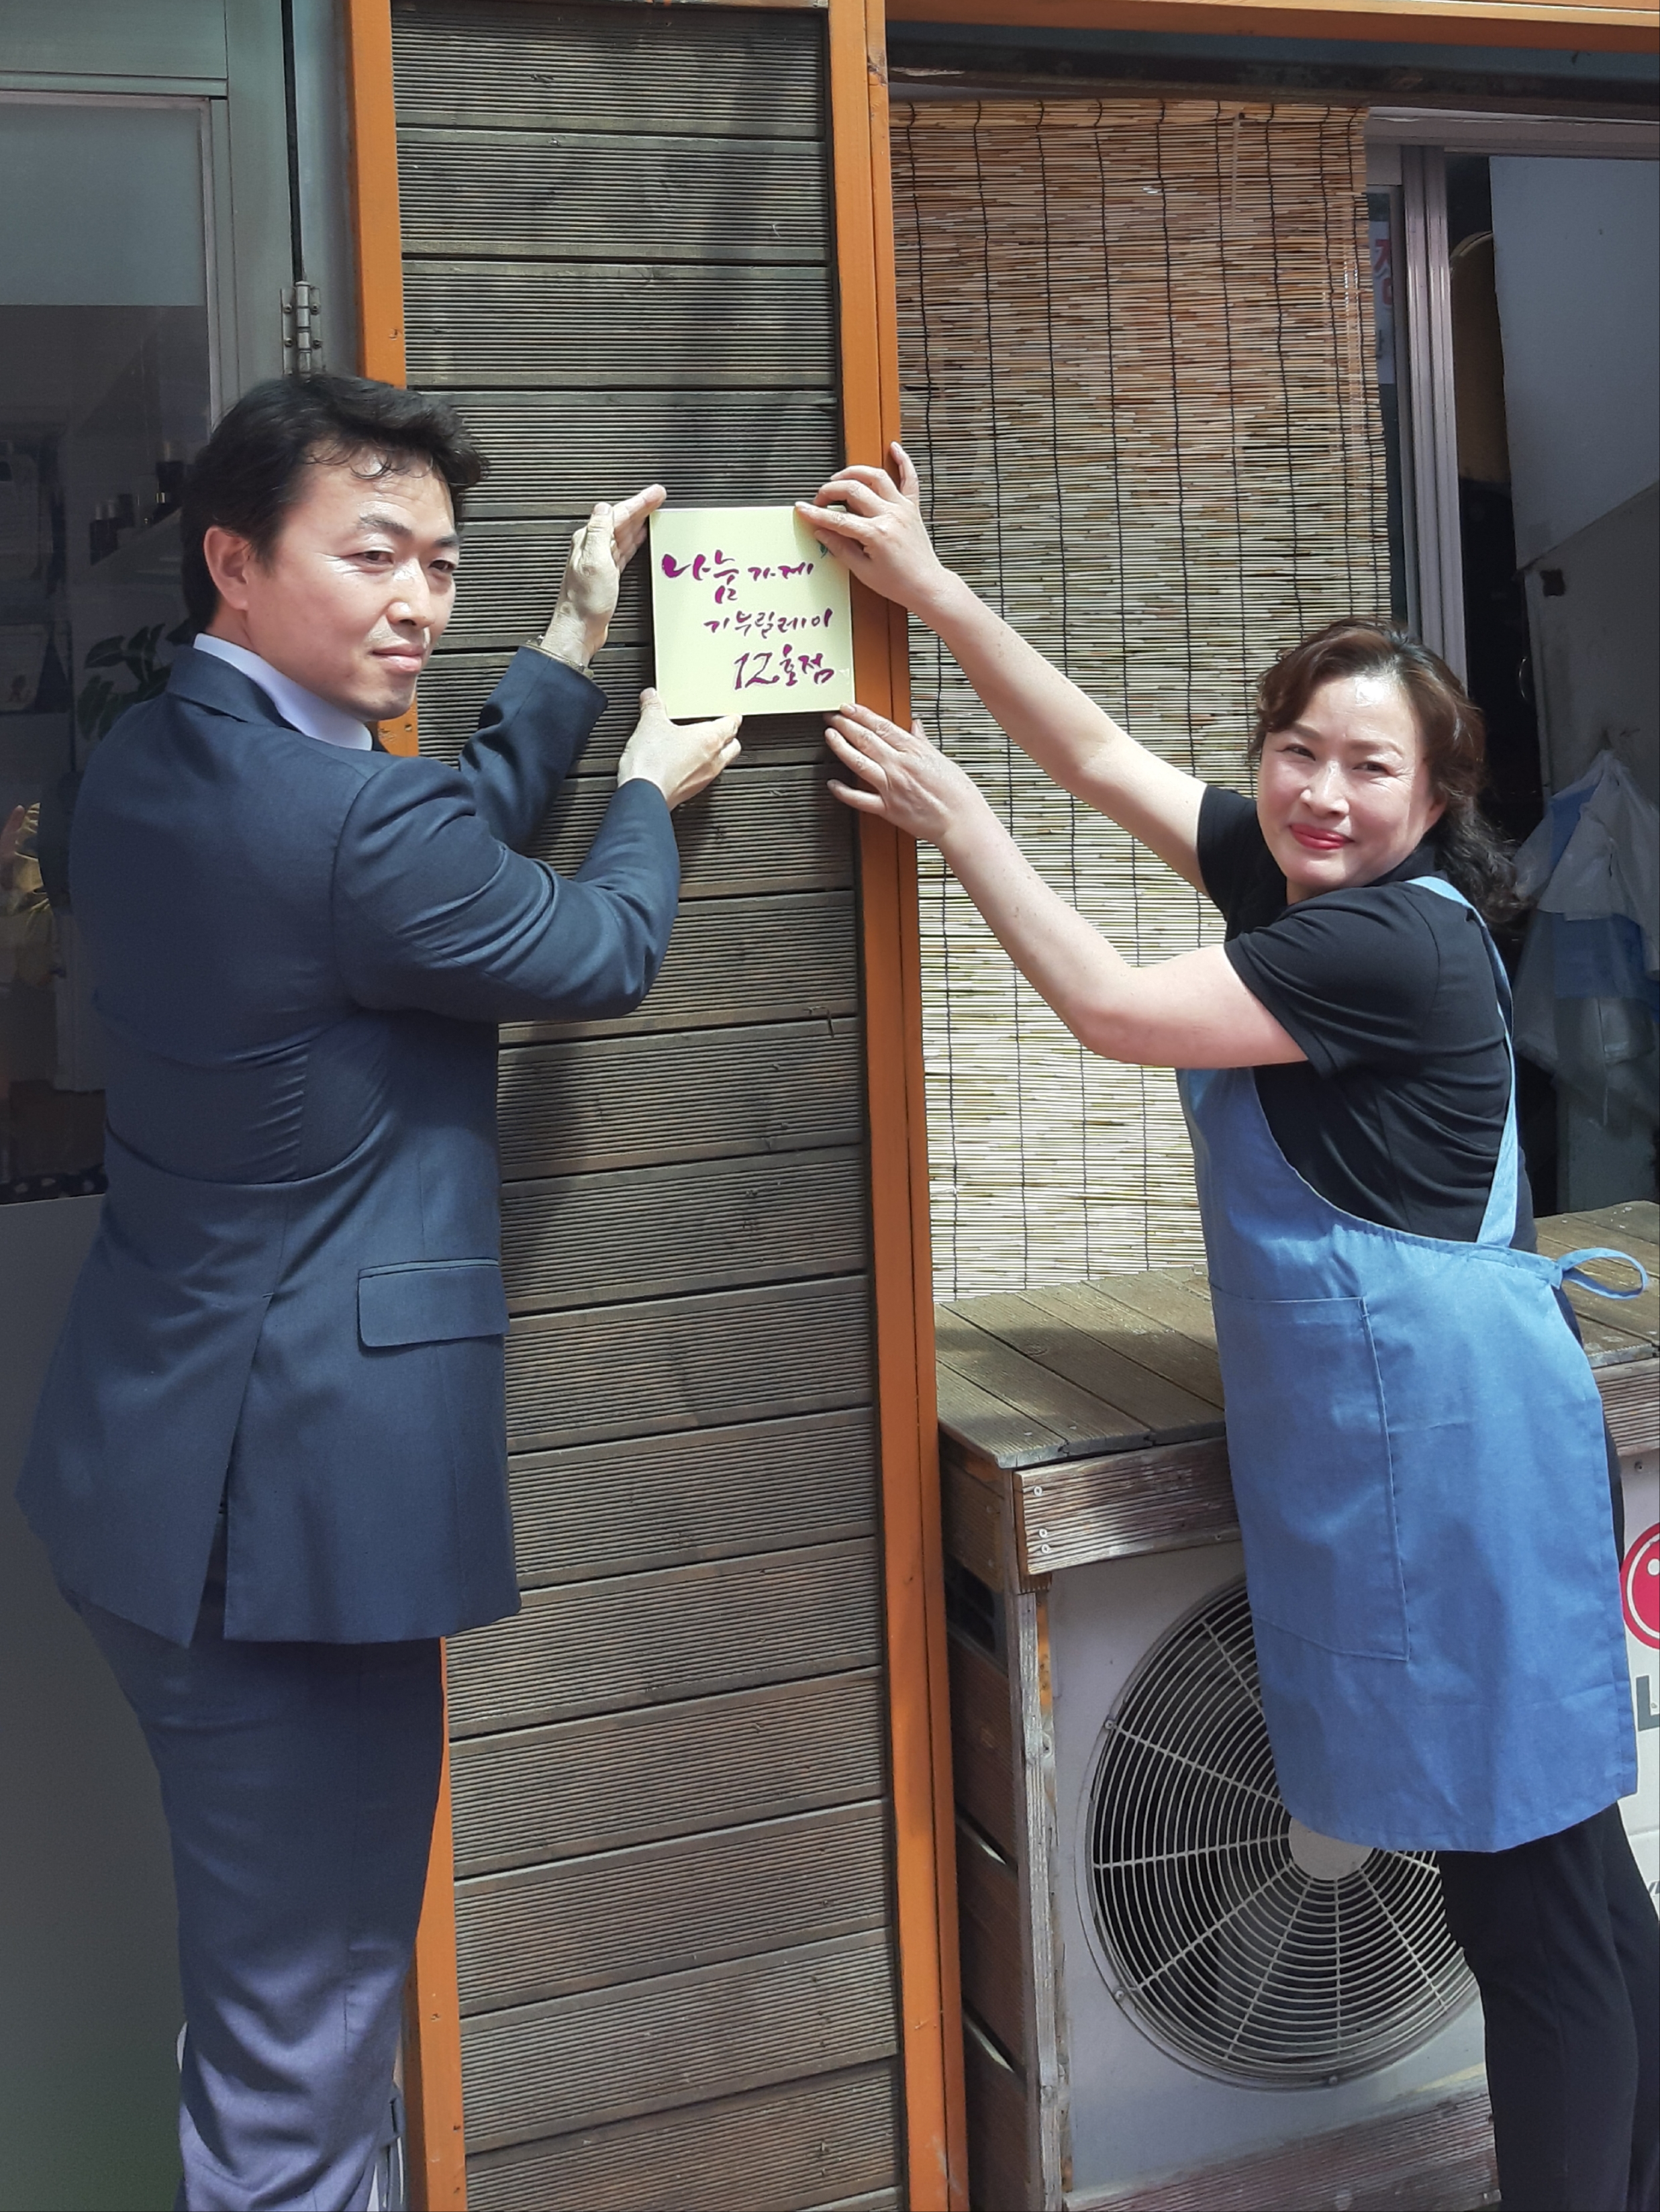 나눔가게
기부릴레이
12호점